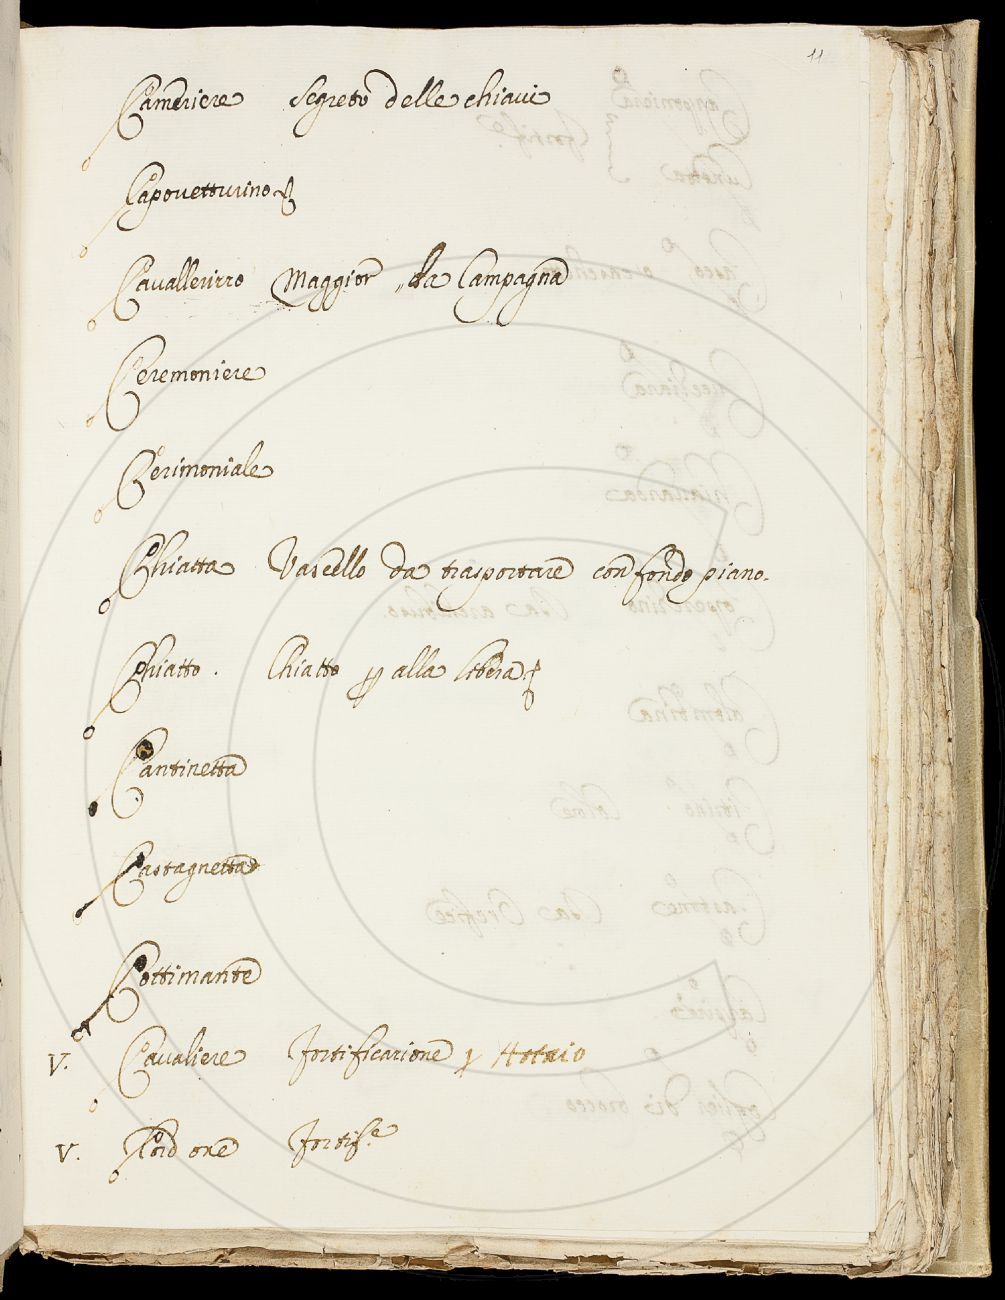 11
Cameriere Segreto delle chiaui
Capouetturino
Cauallerizzo Maggior da Campagna
Ceremoniere
Cerimoniale
Chiatta Vascello da trasportare con fondo piano.
Chiatto. Chiatto alla libera
Cantinetta
Castagnetta
Cottimante
V. Caualiere Fortificazione
V. Cordone Fortif.e